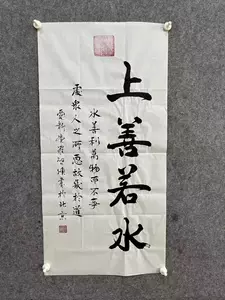 上善若水
水善利萬物而不爭
處衆人之所惡故幾於道
書於北京